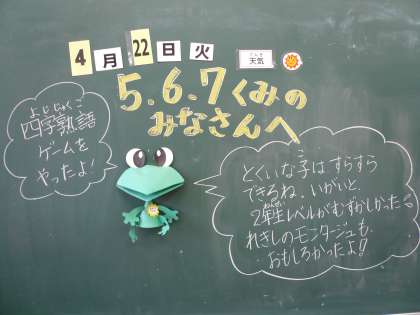 4月22日火
てんき
天気
5.6.7くみの
みなさんへ
よじじゅくご
四字熟語
ゲームを
やったよ!
とくいな子はすらすら
できるね。いがいと、
2年生レベルがむずかしかったる
れきしのモンタージュも
おもしろかったよ!!